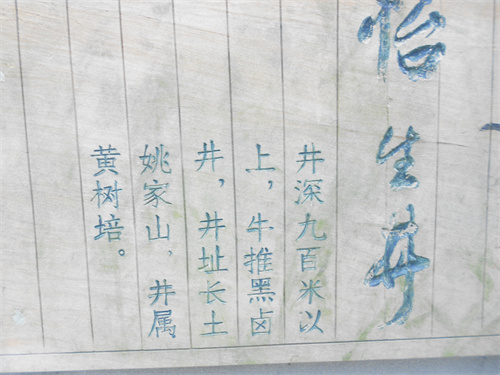 怡生井
井深九百米以
上，牛推黑卤
井，井址长土
姚家山，井属
黄树培。